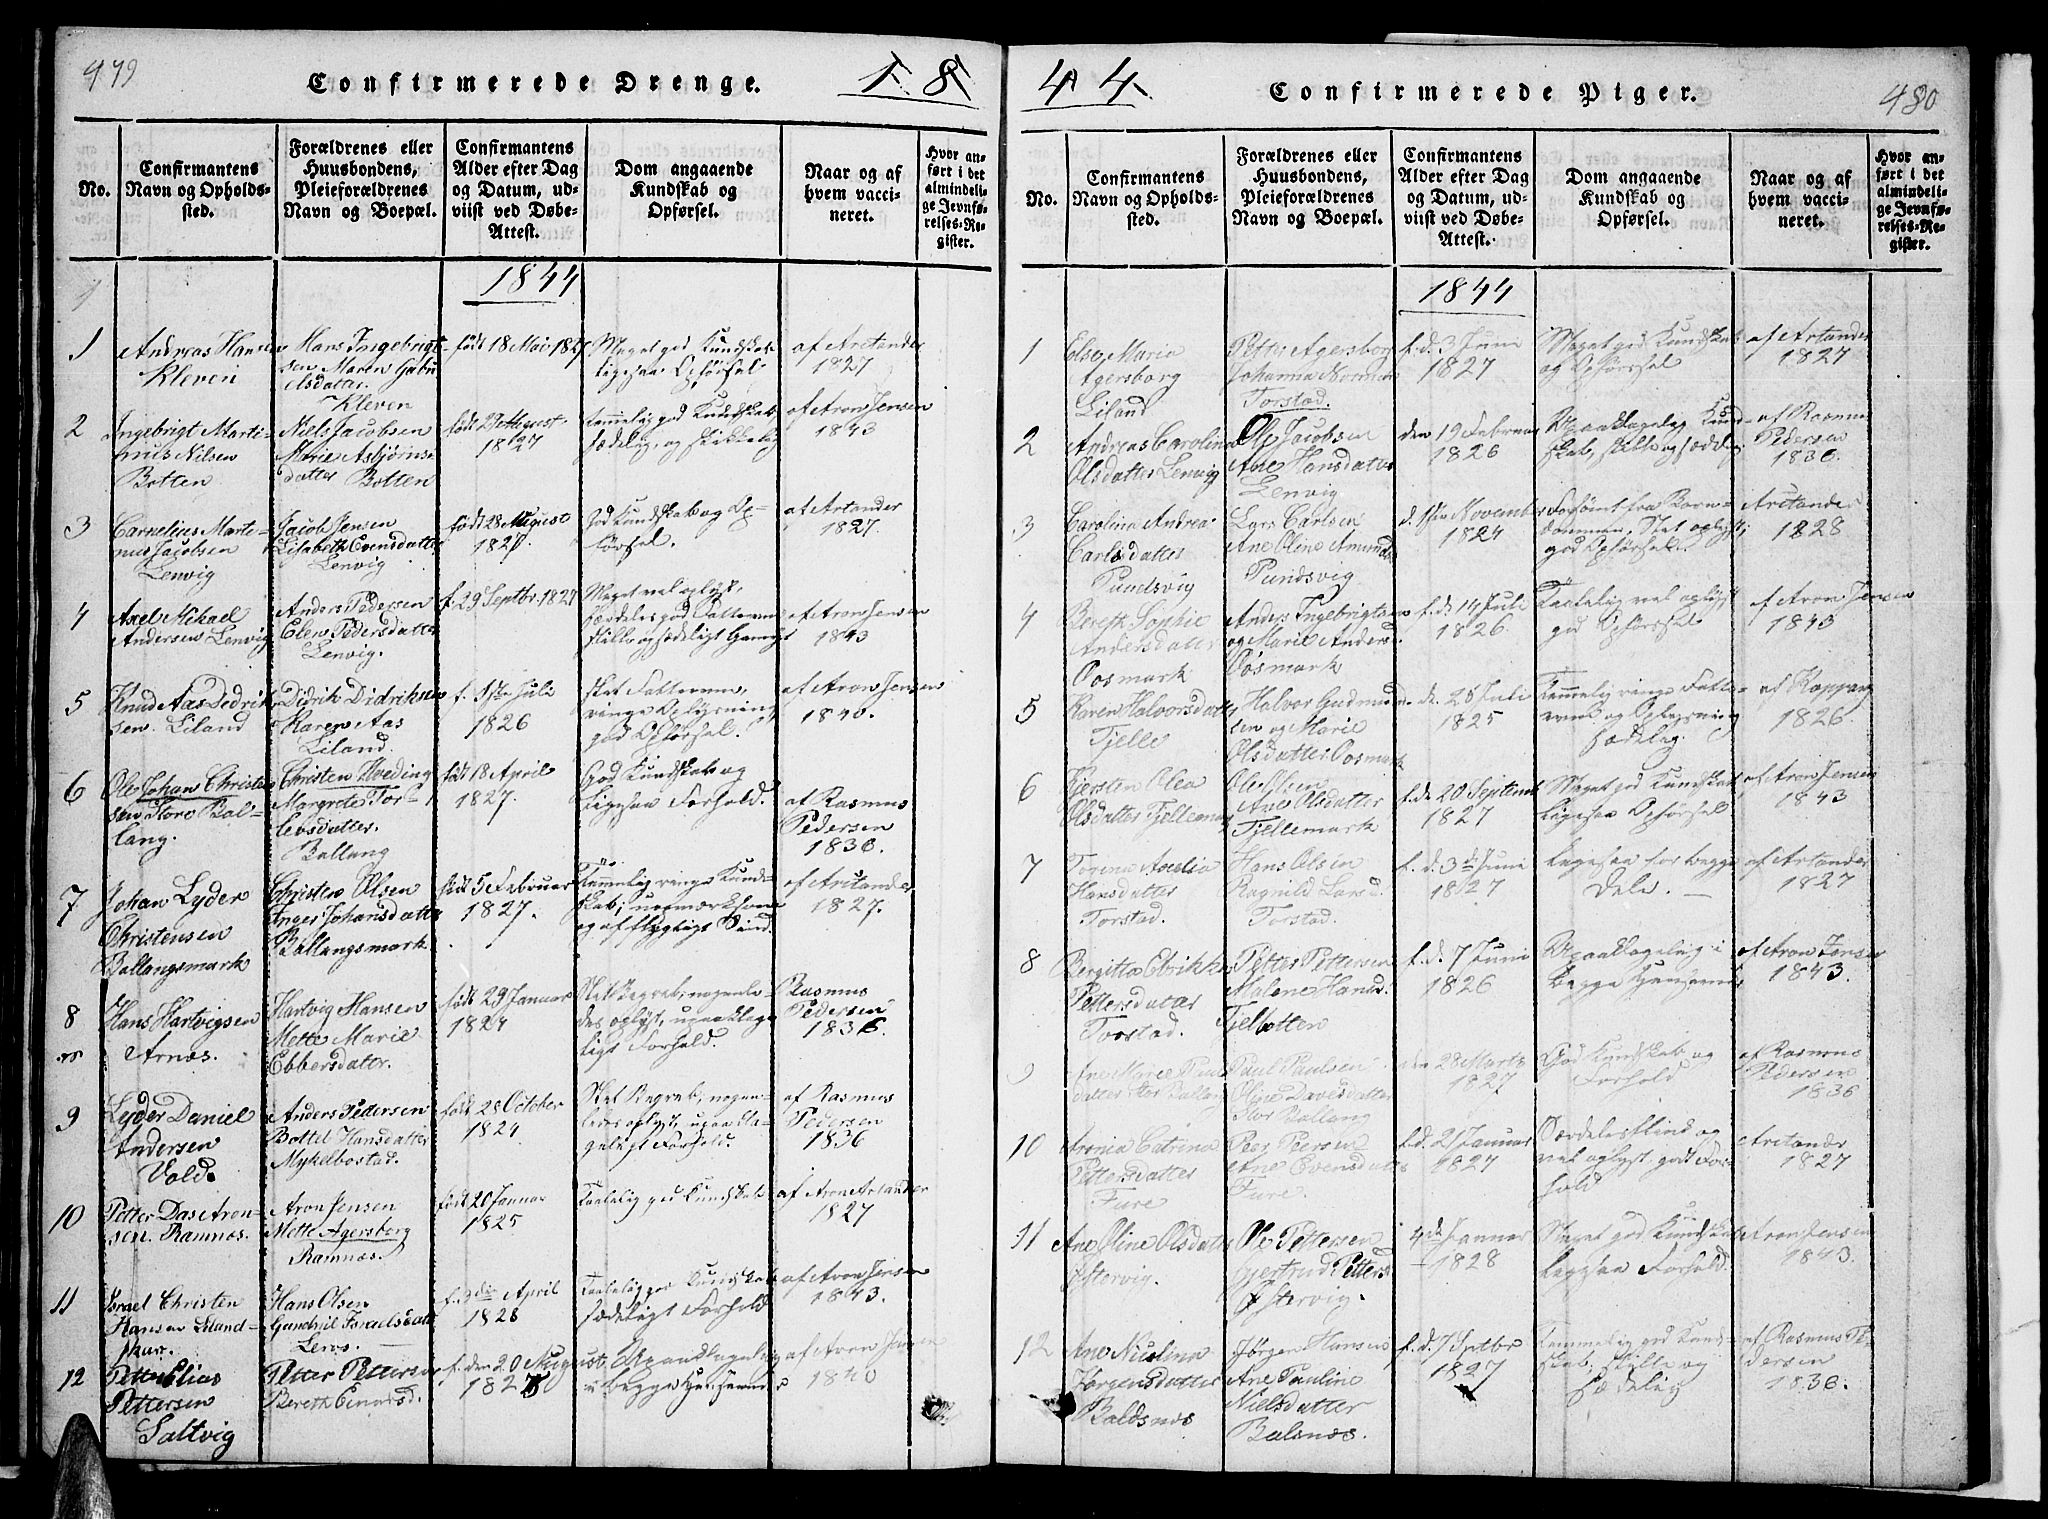 479
Confirmerede Drenge.
18
No.
Confirmantens Navn og Opholds-sted.
Forældrenes eller Huusbondens, Pleieforældrenes Navn og Boepæl.
Confirmantens Alder efter Dag og Datum, ud-viist ved Døbe-Attest.
Dom angaaende Kundskab og Opførsel.
Naar og af hvem vacci-neret.
Hvor an-ført i det almindeli-ge Jevnfø-relses-Re-gister.
1844
1
Andreas Hansen
Kleven
Hans Ingebrigt-
sen Maren Gabri
elsdatter
Kleven
født 18 Mai 1827
Meget god Kundskab
ligesaa Opførsel
af Arctander
1827
2
Ingebrigt Marti-
nus Nilsen
Botten
Niels Jacobsen
Marie Asbjørns
datter Botten
født 27 August
1827
temmelig god Kundskab
sædelig og skikkelig
af Aron Jensen
1843
3
Cornelius Marte-
nus Jacobsen
Lenvig
Jacob Jensen
Lisabeth Evensdatter
Lenvig
født 28 August
1827
God Kundskab og Op-
førsel.
af Artander
1827.
4
Axel Mikael
Andersen Lenvig
Anders Pedersen
Elen Pedersdatter
Lenvig.
f. 29 Septbr. 1827
Meget vel oplyst,
af Aron Jensen
1843
5
Knud Aas Dedrik
sen. Liland
Didrik Didriksen
Karen Aas
Liland.
f. 1ste Juli
1826
slet Fatteevne,
ringe Oplysning
god Opførsel.
af Aron Jensen
1840.
6
Ole Johan Christen
sen Store Bal-
lang.
Christen Hveding
Margrete Tor-
levsdatter.
Ballang
født 18 April
1827.
God Kundskab og
ligesaa Forhold.
af Rasmus
Pedersen
1836.
7
Johan Lyder
Christensen
Ballangsmark
Christen Olsen
Inger Johansdatter
Ballangsmark
født 5 Februar
1827.
Temmelig ringe Kund-
skab, uopmærksom
og af flygtigt Sind.
af Arctander
1827.
8
Hans Hartvigsen
Arnæs.
Hartvig Hansen
Mette Marie
Ebbersdatter.
født 29 Januar
1824
Slet Begreb, nogenle-
des oplyst, upaaklage
ligt Forhold.
Rasmus
Pedersen
1836
9
Lyder Daniel
Andersen
Vold.
Anders Pedersen
Bottel Hansdatter
Mykelbostad.
født 28 October
1824
Slet Begreb, nogen-
ledes oplyst, upaakla-
geligt Forhold.
af Rasmus
Pedersen
1836
10
Petter Das Aron-
sen. Ramnæs.
Aron Jensen
Mette Agersborg
Ramnæs.
født 20 Januar
1825
Taalelig god Kundskab
af Aron Artander
1827
11
Israel Christen
Hansen Liland-
skar.
Hans Olsen
Gundnil Israelsdatt
Leros.
f. 2den April
1828
Taalelig god Kundskab
sædeligt Forhold
af Aron Jensen
1843.
12
Petter Elias
Pettersen
Saltvig
Petter Pettersen
Bereth Einarsd.
f. den 20 August
1828
Upaaklagelig
i begge Henseender
af Aron Jensen
1840
44
Confirmerede Piger.
480
No.
Confirmantens Navn og Opholds-sted.
Forældrenes eller Huusbondens, Pleieforældrenes Navn og Boepæl.
Confirmantens Alder efter Dag og Datum, ud-viist ved Døbe-Attest.
Dom angaaende Kundskab og Opførsel.
Naar og af hvem vacci-neret.
Hvor an-ført i det almindeli-ge Jevnfø-relses-Re-gister.
1844
1
Else Maria
Agersborg
Liland
Petter Agersborg
Johanna Norman
Torstad.
f. d. 3 Juni
1827
Meget god Kundskab
og Opførsel
af Artander
1827
2
Andreas Carolina
Olsdatter Lenvig
Ole Jacobsen
Ane Hansdatter
Lenvig
den 19 Februar
1826
Upaaklagelig Kund-
skab, stille og sædelig
af Rasmus
Pedersen
1836.
3
Carolina Andrea
Carlsdatter
Pundsvig
Lars Carlsen
Ane Oline Amunds
Pundsvig
d. 1ste November
1824
Forsømt fra Barn-
dommen. Slet oplyst,
god Opførsel.
Arctander
1828
4
Bereth Sophie
Andersdatter
Oosmark
Anders Ingebrigtsen
og Marie Anders.
Oosmark
f. d. 14 Juli
1826.
Taalelig vel oplyst
god Opførsel
af Aron Jensen
1843
5
Karen Halvorsdatt
Tjelle
Halvor Gudmund
sen og Marie
Olsdatter Oosmark
de. 25 Juli
1825
Temmelig ringe Fatte-
evne og Oplysning
sædelig.
af Kappang
1826.
6
Kjersten Olea
Olsdatter Tjellemark
Ole Olsen
Ane Olsdatter
Tjellemark
f. d. 20 Septemb
1827
Meget god Kundskab
ligesaa Opførsel
af Aron Jensen
1843
7
Torina Amelia
Hansdatter
Torstad.
Hans Olsen
Ragnild Larsd.
Torstad.
f. d. 3de Juni
1827
Ligesaa for begge
Dele.
af Artander
1827
8
Bergitta Ulrikke
Pettersdatter
Torstad.
Petter Pettersen
Malene Hansd.
Tjelbotten
f. d. 7 Juni
1826
Upaaklagelig i
begge Henseender
af Aron Jensen
1843.
9
Ane Marie Paul
datter Stor Ballang
Paul Paulsen
Oline Davesdatter
Stor Ballang
den 28 Marts
1827
God Kundskab og
Forhold
af Rasmus
Pedersen
1836
10
Aronia Catrina
Pettersdatter
Fure
Peer Peersen
Ane Evensdatter
Fure.
f. d. 21 Januar
1827
vel oplyst, godt For-
hold
Arctander
1827
11
Ane Oline Olsdatter
Østervig.
Ole Pettersen
Gjertrud Petters
Østervig.
4de Januar
1828
Meget god Kundskab
ligesaa Forhold.
Aron Jensen
1843.
12
Ane Niulina
Jørgensdatter
Baldsnæs
Jørgen Hansen
Ane Pauline
Nielsdatter
Balsnæs.
f. d. 7 Septbr
1827
Temmelig god Kund-
skab, stille og
sædelig
af Rasmus Pe-
dersen
1836.